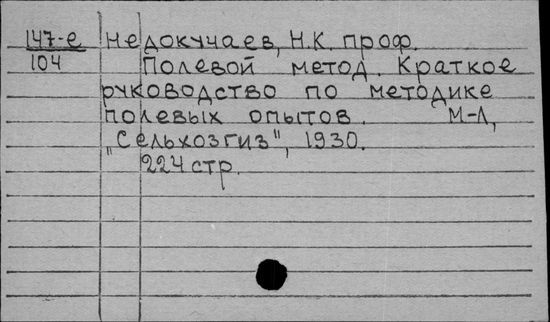 147-е Недокучаев, Н.К. проф.
104 Полевой метод. Краткое
руководство по методике
полевых опытов. М-Л,
„Сельхозгиз", 1930.
224 стр.